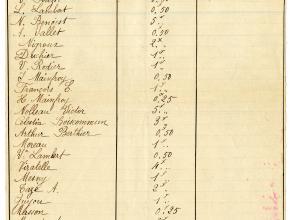 L. Labbat 0,50
N. Benoist 5
A. Vallet 0,50
Nipoux 2
Duhier 1
V. Rodier 1
J. Mainfroy 0,50
François E. 1
H. Mainfroy 0,25
Nolleau Victor 5
Célestin Boiscommun 3
Arthur Berthier 0,50
Moreau 1
V. Lambert 0,50
Viratelle 4
Mesny 1
Cagé A. 2
1
Masson 0,25